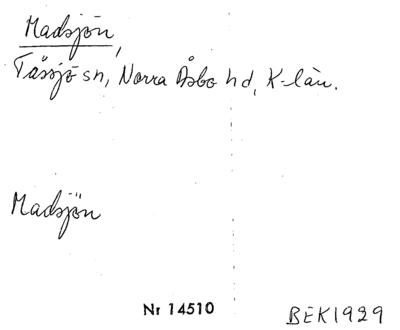 Madsjön,
Tåssjö sn, Norra Åsbo hd, K-län.
Madsjön
Nr 14510
BEK1929